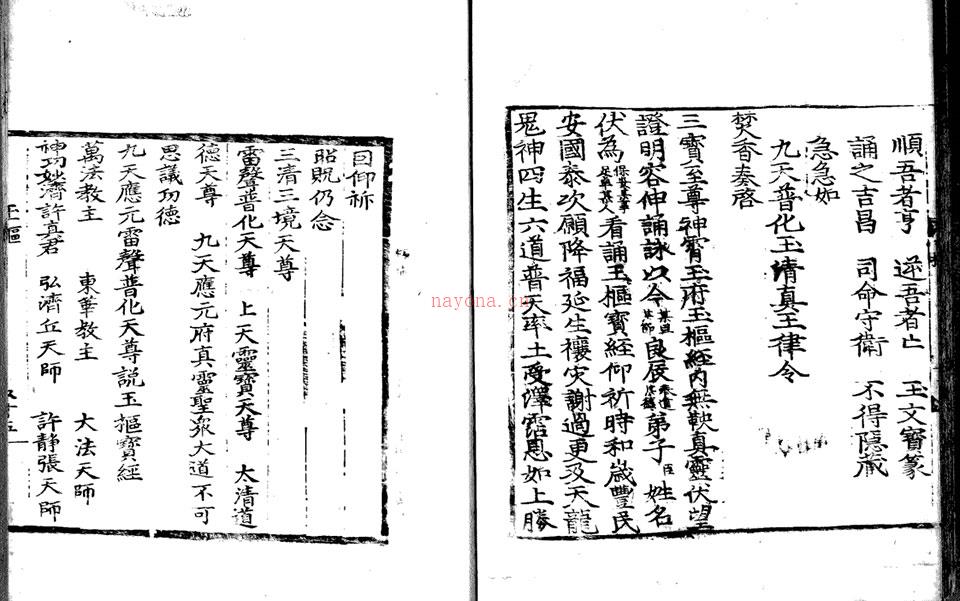 順吾者亨　逆吾者亡　玉文寶篆
誦之吉昌　司命守衛　不得隱藏
急急如
九天普化玉清真王律令
焚香奏啓
三寶至尊神霄玉府玉樞經內無鞅真靈伏望
證明容伸誦詠以今某月某節良辰奉道弟子臣姓名
伏為看誦玉樞寶經仰祈時和歲豐民
安國泰次願降福延生禳灾謝過更及天龍
鬼神四生六道普天率土受澤霑恩如上勝
因仰祈
昭貺仍念
三清三境天尊
雷聲普化天尊　上天靈寶天尊　太清道
德天尊　九天應元府真靈聖衆大道不可
思議功德
九天應元雷聲普化天尊說玉樞寶經
萬法教主　東華教主　大法天師
神功妙濟許真君　弘濟丘天師　許靜張天師
玉樞
nayona.cn